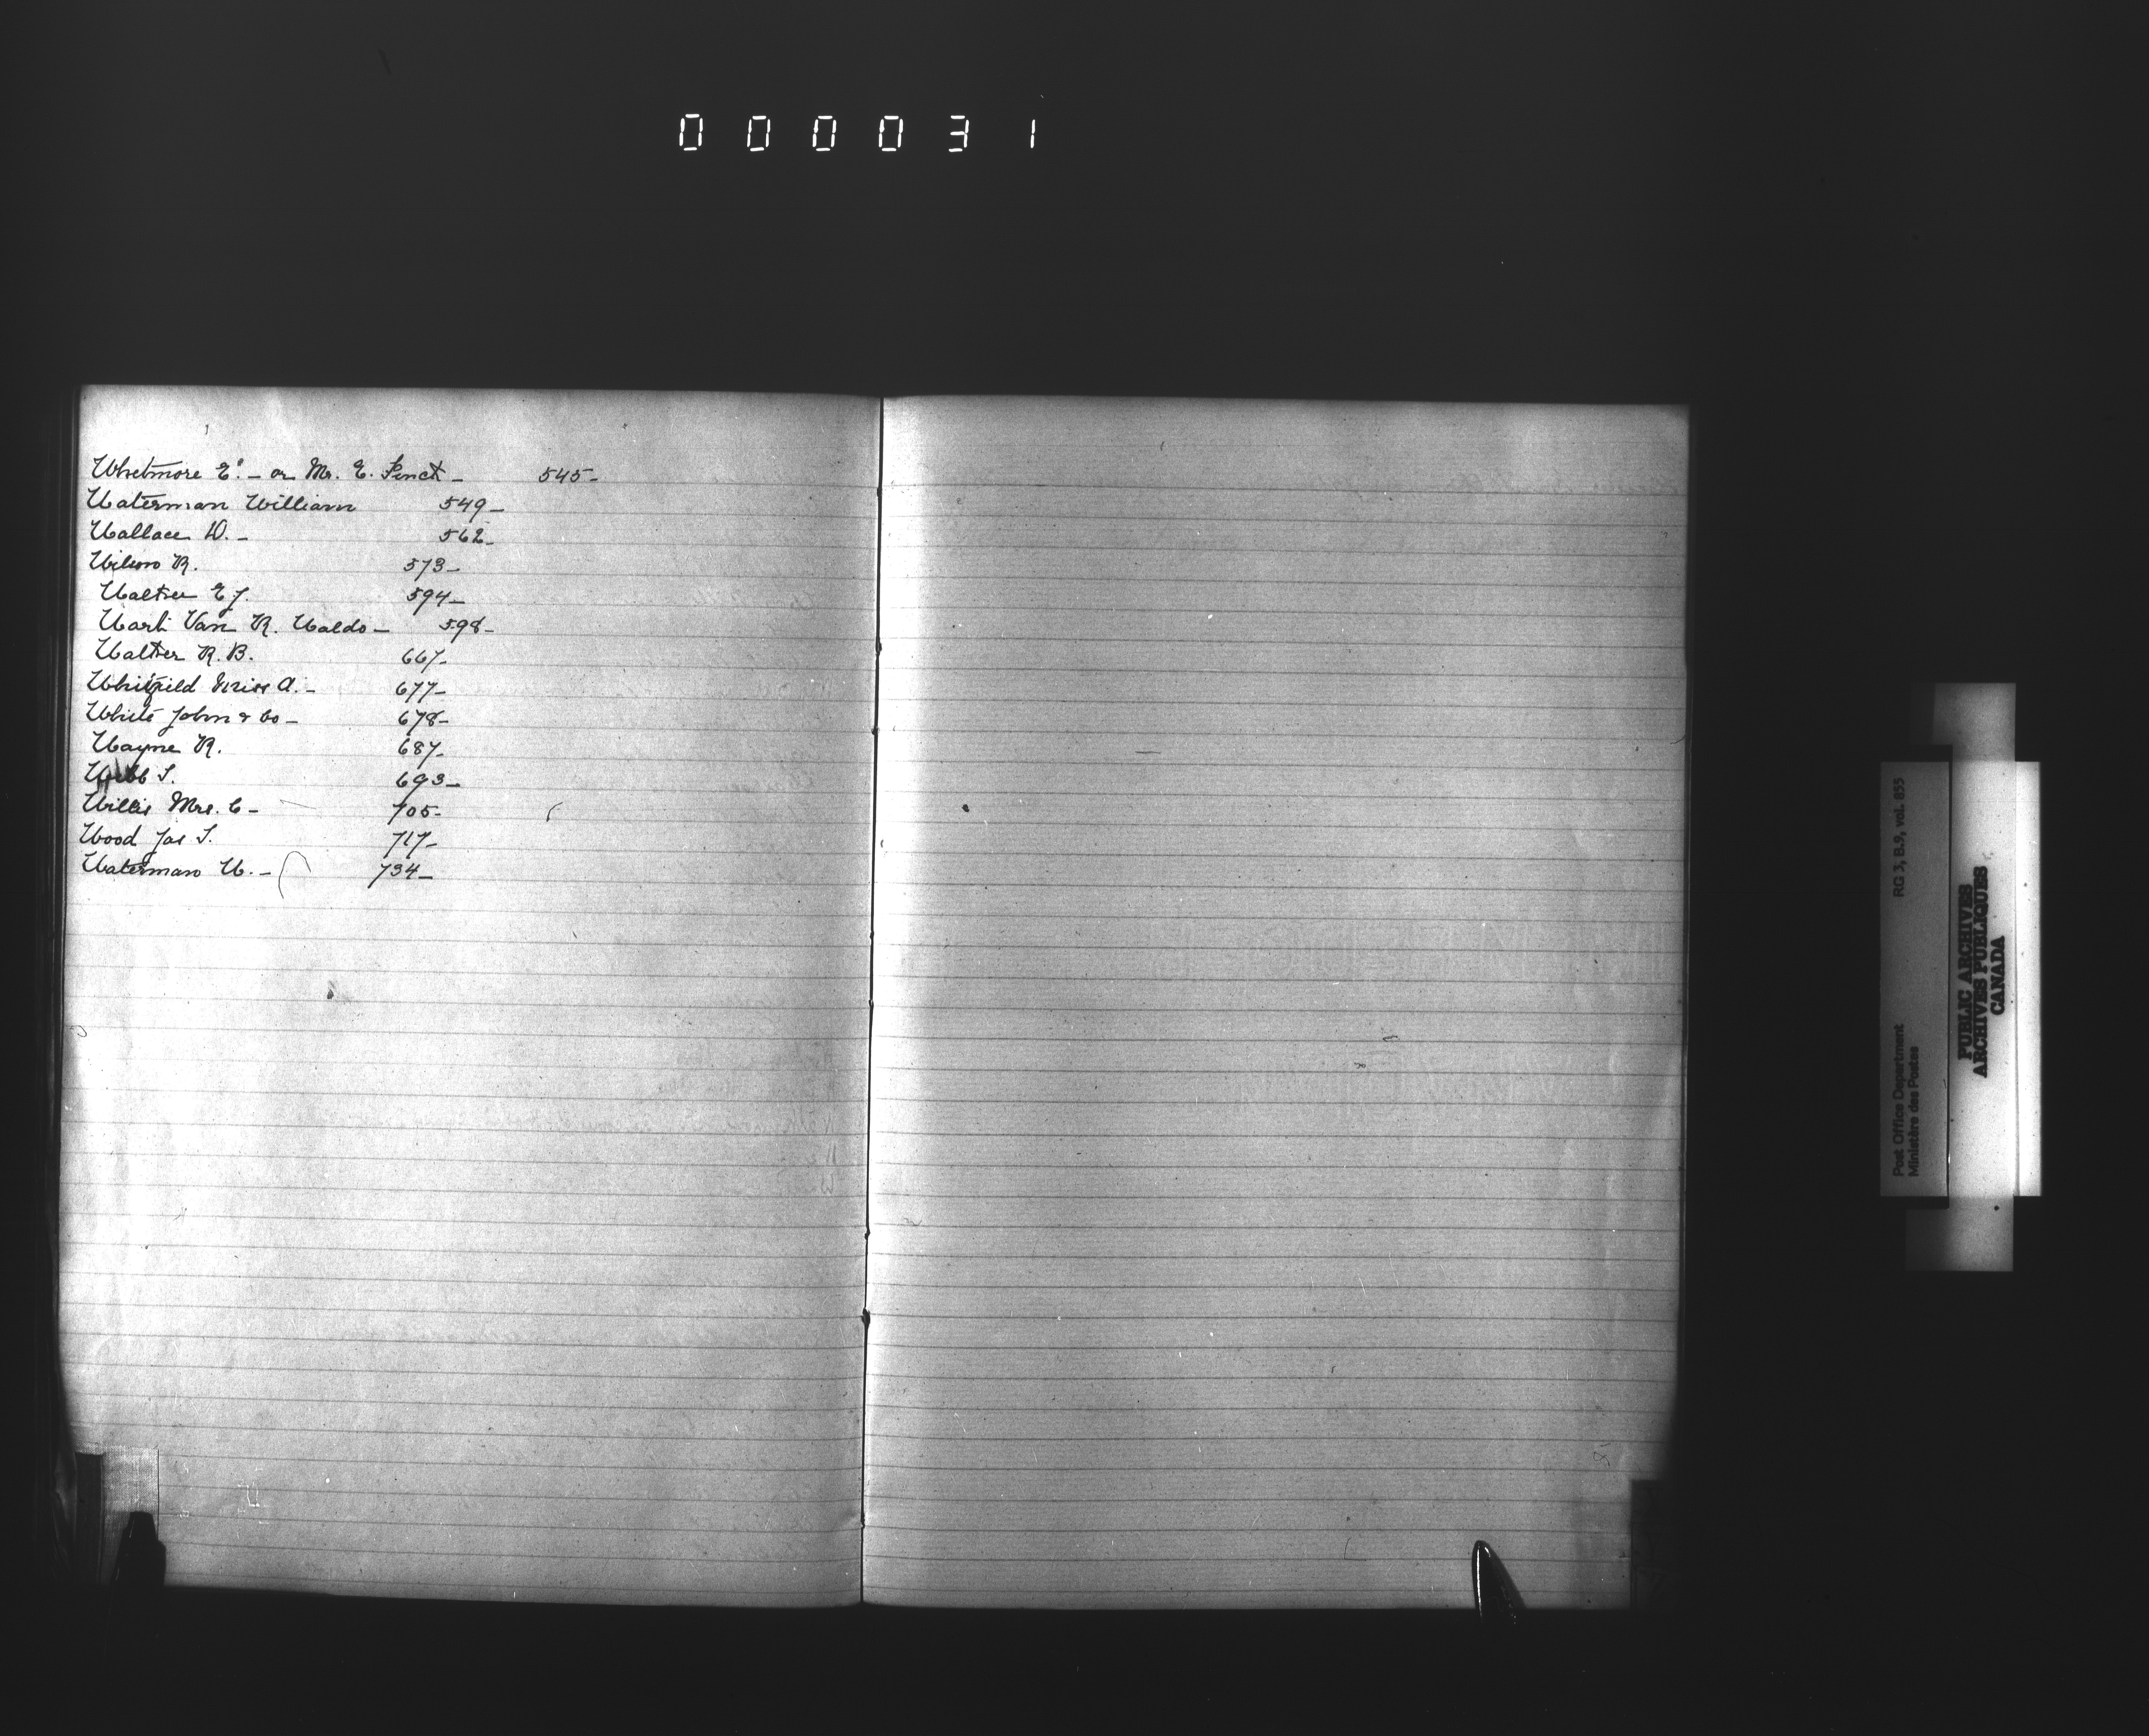 000031
Whetmore E. - or Mr. E. Penct - 545-
Waterman William 549-
Wallace D. - 562-
Wilson R. 573-
Walter E J. 594-
Wark Van R. Waldo - 598-
Walter R. B. 667-
Whitfield Miss A. - 677-
White John & Co - 678-
Wayne R. 687-
Webb S. 693-
Willis Mrs. C - 705-
Wood Jas S. 717-
Waterman W. - 734-
Post Office Department RG 3, B.9, vol. 855
Ministère des Postes
PUBLIC ARCHIVES
ARCHIVES PUBLIQUES
CANADA